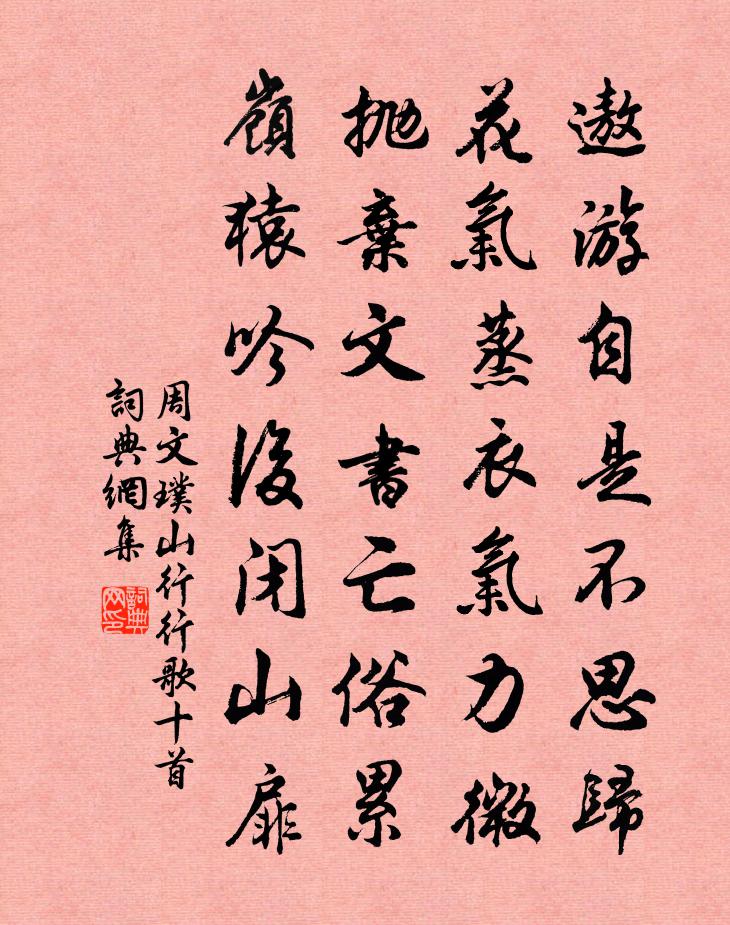 遨游自是不思歸
花氣蒸衣氣力微
拋棄文書亡俗累
嶺猿吟後閉山扉
周文璞山行行歌十首
詞典網集
詞典网印